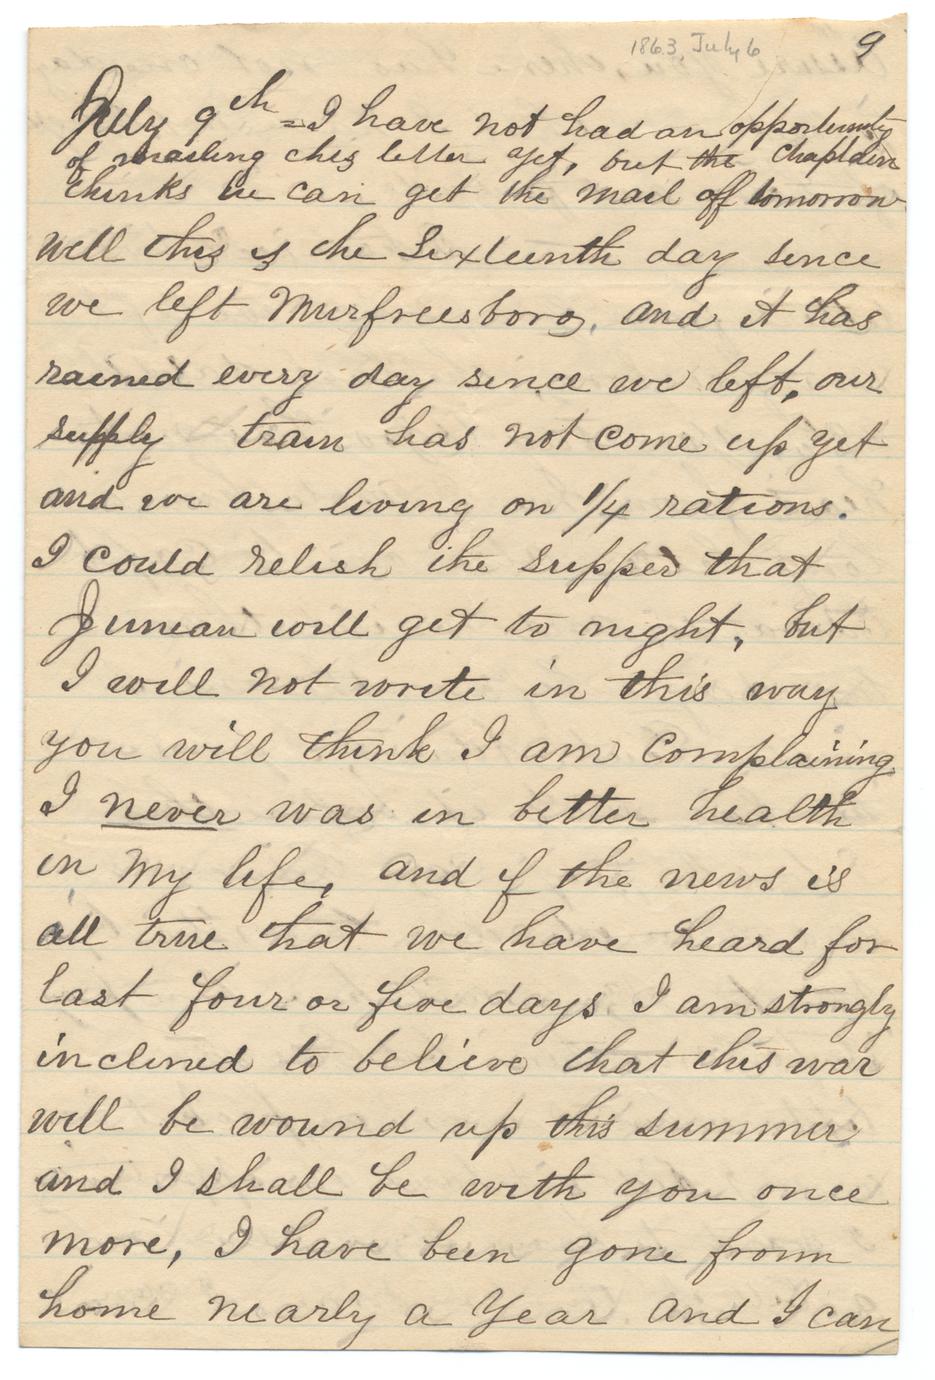 1863, July 6
9
July 9th = I have not had an opportunity
of mailing this letter yet, but the Chaplain
thinks he can get the mail off tomorrow
Well this is the Sixteenth day since
we left Murfreesboro, and it has
rained every day since we left, our
supply train has not come up yet
and we are living on 1/4 rations.
I could relish the supper that
will get to night, but
I will not write in this way
you will think I am Complaining
I never was in better health
in my life, and if the news is
all true that we have heard for
last four or five days I am strongly
inclined to believe that this war
will be wound up this summer
and I shall be with you once
more, I have been gone from
home nearly a Year and I can